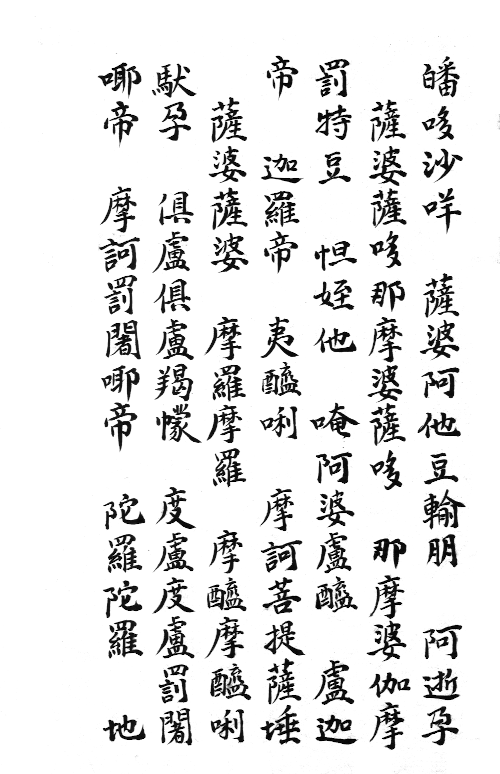 皤哆沙咩　薩婆阿他豆輸朋　阿逝孕
薩婆薩哆那摩婆薩哆　那摩婆伽摩
罰特豆　怛姪他　唵阿婆盧醯　盧迦
帝　迦羅帝　夷醯唎　摩訶菩提薩埵
薩婆薩婆　摩羅摩羅　摩醯摩醯唎
馱孕　俱盧俱盧羯懞　度盧度盧罰闍
唧帝　摩訶罰闍唧帝　陀羅陀羅　地